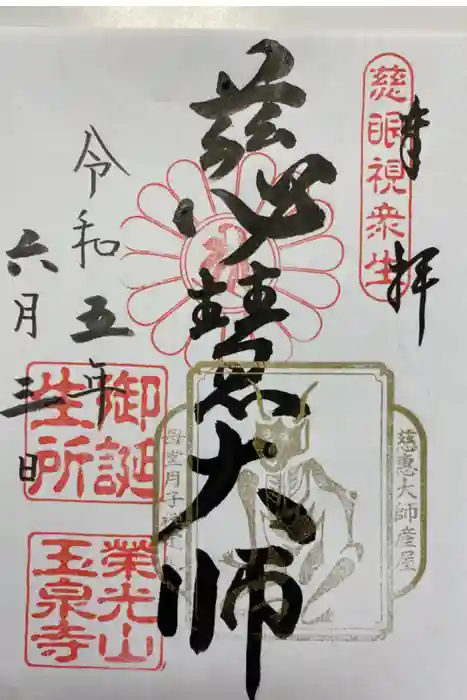 奉拝
慈眼視衆生
慈慧大師
慈惠大師産屋
母堂月子姫
令和五年
六月三日
御誕
生所
榮光山
玉泉寺